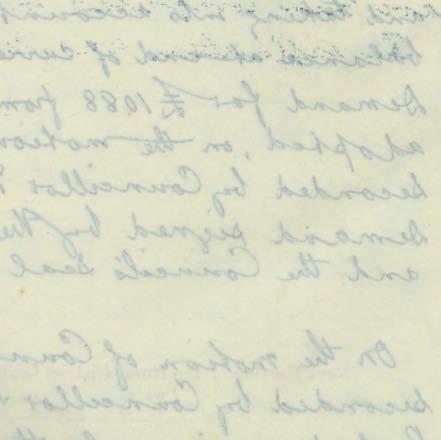 and taking into account
balance at end of curre
Demand for £1088 from
adopted, on the motion
seconded by Councillor
Demand signed by the
and the Council's Seal
On the motion of Coun
seconded by Councillor